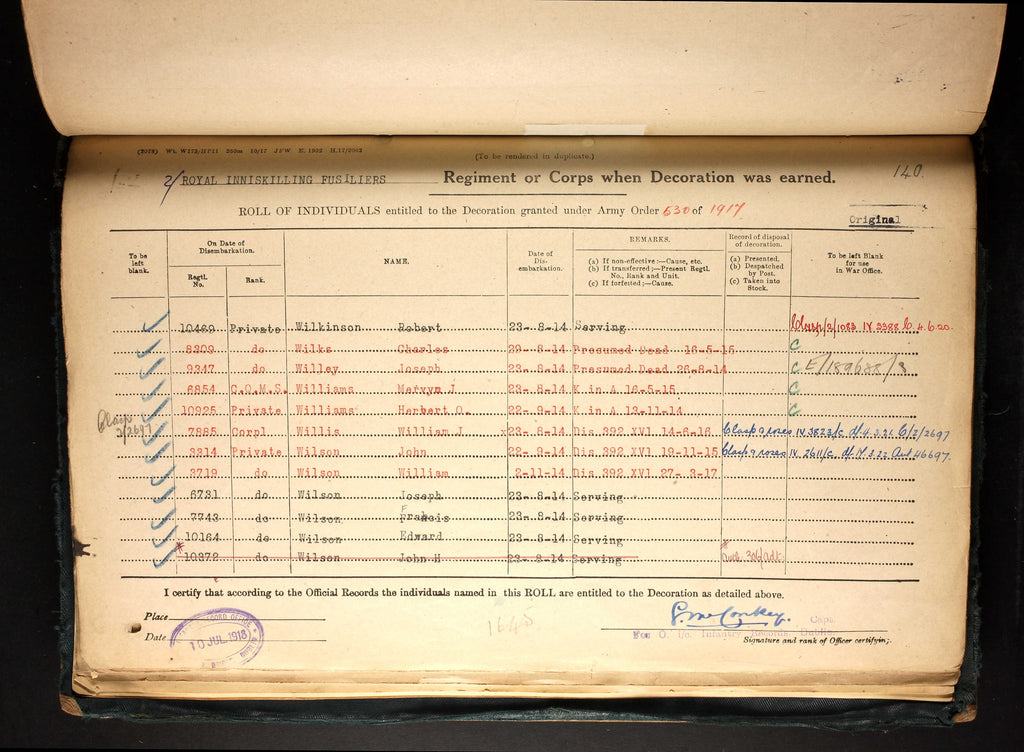 (2078) Wt. W172/HP11 250m 10/17 J.P.W. E. 1902 H.17/2063
(To be rendered in duplicate.)
140.
2/ ROYAL INNISKILLING FUSILIERS Regiment or Corps when Decoration was earned.
ROLL OF INDIVIDUALS entitled to the Decoration granted under Army Order 530 of 1917
Original
To be left blank.
On Date of Disembarkation.
Regtl. No.
Rank.
NAME.
Date of Disembarkation.
REMARKS.
(a) If non-effective :—Cause, etc.
(b) If transferred ;—Present Regtl. No., Rank and Unit.
(c) If forfeited ;—Cause.
Record of disposal of decoration.
(a) Presented.
(b) Despatched by Post.
(c) Taken into Stock.
To be left Blank for use in War Office.
10469 Private Wilkinson Robert 23-8-14 Serving Clasp/2/1083 IV 3388 4.6.20.
8209 do Wilks Charles 29-8-14 Presumed Dead 16-5-15 C
9347 do Willey Joseph 23-8-14 Presumed Dead 26-8-14 C E/1
6854 C.Q.M.S. Williams Mervyn J 23-8-14 K in A 16-5-15 C
10925 Private Williams Herbert O. 22-9-14 K in A 12-11-14 C
Clasp 2/2697
7885 Corpl Willis William J x23-8-14 Dis 392 XVI 14-6-16 Clasp & roses IV 3823/c d/4.3.21 C/2/2697
3314 Private Wilson John 22-9-14 Dis 392 XVI 19-11-15 Clasp & roses IV 2611/c d/17.3.22 46697.
3719 do Wilson William 2-11-14 Dis 392 XVI 27-3-17
6731 do Wilson Joseph 23-8-14 Serving
7743 do Wilson Francis 23-8-14 Serving
10164 do Wilson Edward 23-8-14 Serving
* 10372 do Wilson John H 23-8-14 Serving *
I certify that according to the Official Records the individuals named in this ROLL are entitled to the Decoration as detailed above.
Place
Date
RECORD OFFICE
10 JUL 1918
DUBLIN
1645
McConkey. Capt.
For O. i/c. Infantry Records, Dublin.
Signature and rank of Officer certifying.